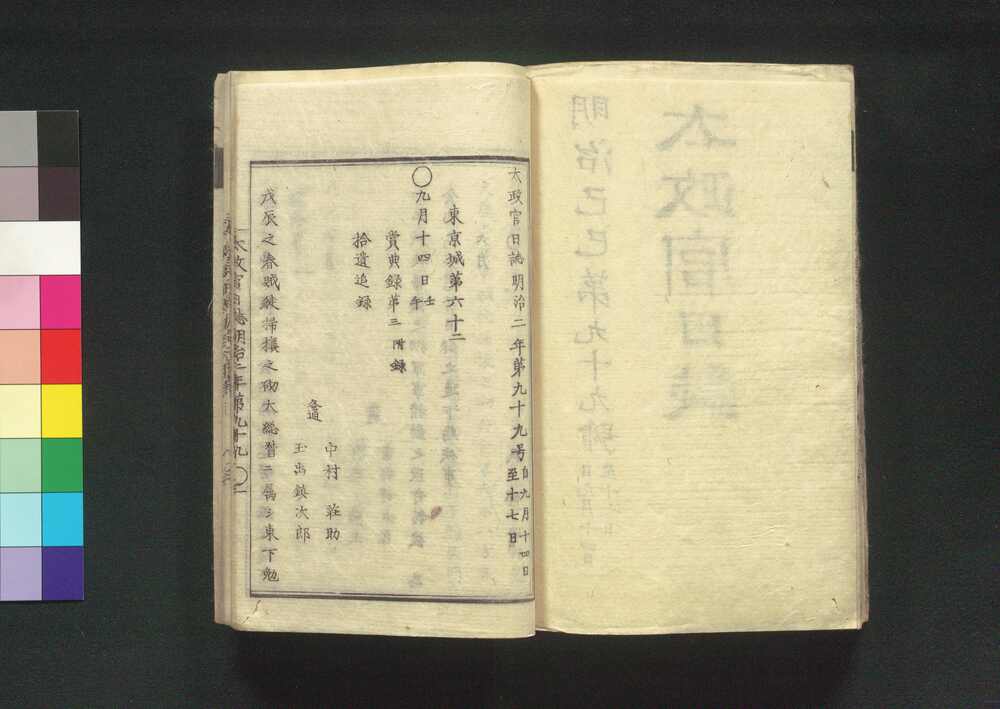 太政官日誌明治二年第九十九号 自九月十四日至十七日
東京城第六十二
〇九月十四日壬午
賞典録第三附錄
拾遺追録
中村莊助
玉田鎮次郎
戊辰之春賊徒掃攘之砌大總督ニ属シ東下勉
太政官日誌明治二年第九十九 〇一
太政官日誌
明治己巳第九十九號